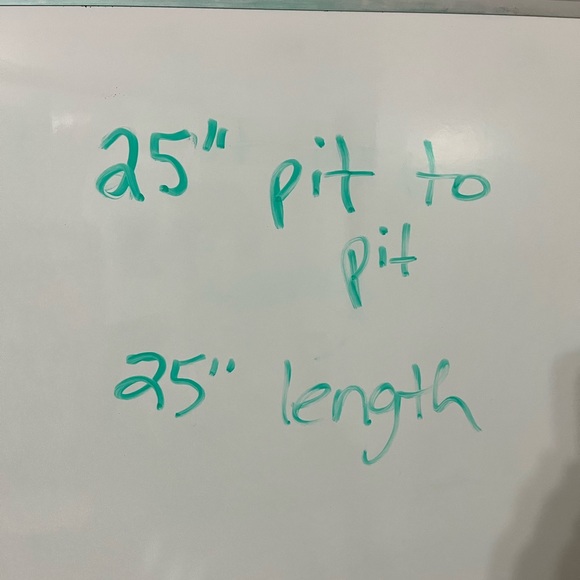 25" pit to
pit
25" length